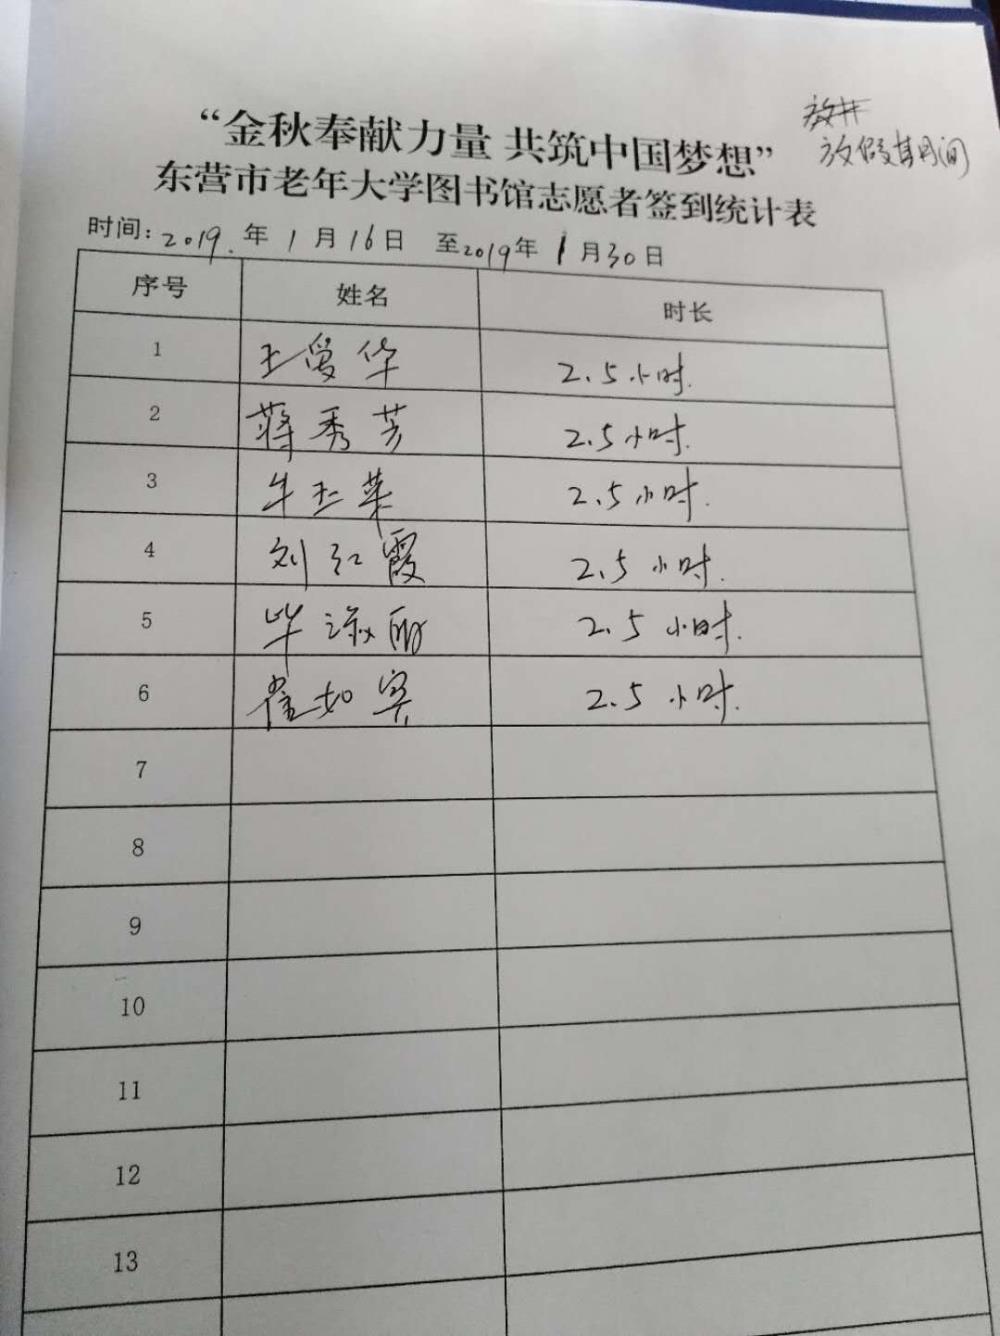 放井
放假期间
“金秋奉献力量 共筑中国梦想”
东营市老年大学图书馆志愿者签到统计表
时间: 2019. 年 1 月 16 日 至 2019 年 1 月 30 日
序号 姓名 时长
1 王爱华 2.5小时.
2 蒋秀芳 2.5小时.
3 牛玉华 2.5小时.
4 刘红霞 2.5小时.
5 毕淑丽 2.5小时.
6 崔如实 2.5小时.
7
8
9
10
11
12
13